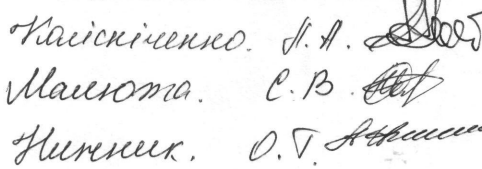 Каліскіченко. Л. А.
Малюта. С. В
Нижник. О. Г.